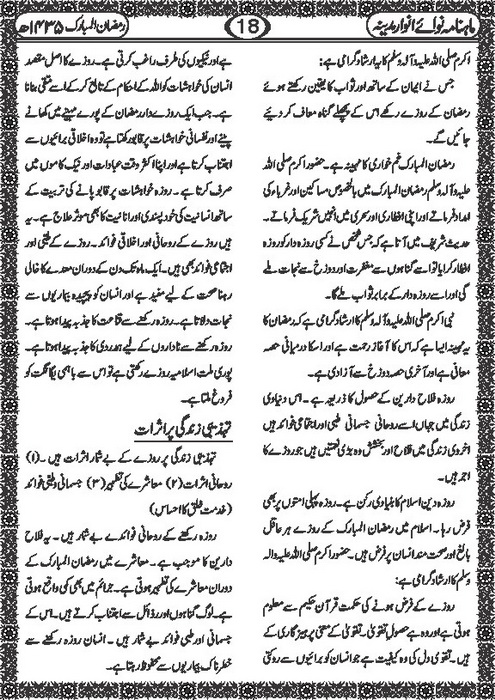 ماہنامہ نوائے انوار مدینہ
18
رمضان المبارک ۱۴۳۵ھ
اکرم صلی اللہ علیہ وآلہ وسلم کا یہ ارشاد گرامی ہے:
جس نے ایمان کے ساتھ اور ثواب کا یقین رکھتے ہوئے
رمضان کے روزے رکھے اس کے پچھلے گناہ معاف کر دیئے
جائیں گے۔
رمضان المبارک غم خواری کا مہینہ ہے۔ حضور اکرم صلی اللہ
علیہ وآلہ وسلم رمضان المبارک میں بالخصوص مساکین اور غرباء کی
امداد فرماتے اور اپنی افطاری اور سحری میں انہیں شریک فرماتے۔
حدیث شریف میں آتا ہے کہ جس شخص نے کسی روزہ دار کو روزہ
افطار کرایا تو اسے گناہوں سے مغفرت اور دوزخ سے نجات ملے
گی اور اسے روزہ دار کے برابر ثواب ملے گا۔
نبی اکرم صلی اللہ علیہ وآلہ وسلم کا ارشاد گرامی ہے کہ رمضان کا
یہ مہینہ ایسا ہے کہ اس کا آغاز رحمت ہے اور اسکا درمیانی حصہ
معافی ہے اور آخری حصہ دوزخ سے آزادی ہے۔
روزہ فلاح دارین کے حصول کا ذریعہ ہے۔ اس دنیاوی
زندگی میں جہاں اس سے روحانی جسمانی طبی اور اجتماعی فوائد ہیں
اخروی زندگی میں فلاح اور بخشش وہ بڑی نعمتیں ہیں جو روزے کا
اجر ہیں۔
روزہ دین اسلام کا بنیادی رکن ہے۔ روزہ پہلی امتوں پر بھی
فرض رہا۔ اسلام میں رمضان المبارک کے روزے ہر عاقل
بالغ اور صحت مند انسان پر فرض ہیں۔ حضور اکرم صلی اللہ علیہ والہ
وسلم کا ارشاد گرامی ہے:
روزے کے فرض ہونے کی حکمت قرآن حکیم سے معلوم
ہوتی ہے اور وہ ہے حصول تقویٰ۔ تقویٰ کے معنی پرہیزگاری کے
ہیں۔ تقویٰ دل کی وہ کیفیت ہے جو انسان کو برائیوں سے روکتی
ہے اور نیکیوں کی طرف راغب کرتی ہے۔ روزے کا اصل مقصد
انسان کی خواہشات کو اللہ کے احکام کے تابع کر کے اسے متقی بنانا
ہے۔ جب ایک روزے دار رمضان کے پورے مہینے میں کھانے
پینے اور نفسانی خواہشات پر قابو رکھتا ہے تو وہ اخلاقی برائیوں سے
اجتناب کرتا ہے اور اپنا اکثر وقت عبادات اور نیک کاموں میں
صرف کرتا ہے۔ روزہ خواہشات پر قابو پانے کی تربیت کے
ساتھ انسانیت کی خود پسندی اور انانیت کا بھی موثر علاج ہے۔ یہ
ہیں روزے کے روحانی اور اخلاقی فوائد۔ روزے کے طبی اور
اجتماعی فوائد بھی ہیں۔ ایک ماہ تک دن کے دوران معدے کا خالی
رہنا صحت کے لیے مفید ہے اور انسان کو پیچیدہ بیماریوں سے
نجات دلاتا ہے۔ روزے رکھنے سے قناعت کا جذبہ پیدا ہوتا ہے۔
روزہ رکھنے سے ناداروں کے لیے ہمدردی کا جذبہ پیدا ہوتا ہے۔
پوری ملت اسلامیہ روزے رکھتی ہے تو اس سے باہمی یگانگت کو
فروغ ملتا ہے۔
تہذیبی زندگی پر اثرات
تہذیبی زندگی پر روزے کے بے شمار اثرات ہیں۔ (۱)
روحانی اثرات (۲) معاشرے کی تطہیر (۳) جسمانی وطبی فوائد
(خدمت خلق کا احساس)
روزہ رکھنے کے روحانی فوائد بے شمار ہیں۔ یہ فلاح
دارین کا موجب ہے۔ معاشرے میں رمضان المبارک کے
دوران معاشرے کی تطہیر ہوتی ہے۔ جرائم میں بھی کمی واقع ہوتی
ہے۔ لوگ گناہوں اور رذائل سے اجتناب کرتے ہیں۔ اس کے
جسمانی اور طبی فوائد بے شمار ہیں۔ انسان روزہ رکھنے سے
خطرناک بیماریوں سے محفوظ رہتا ہے۔